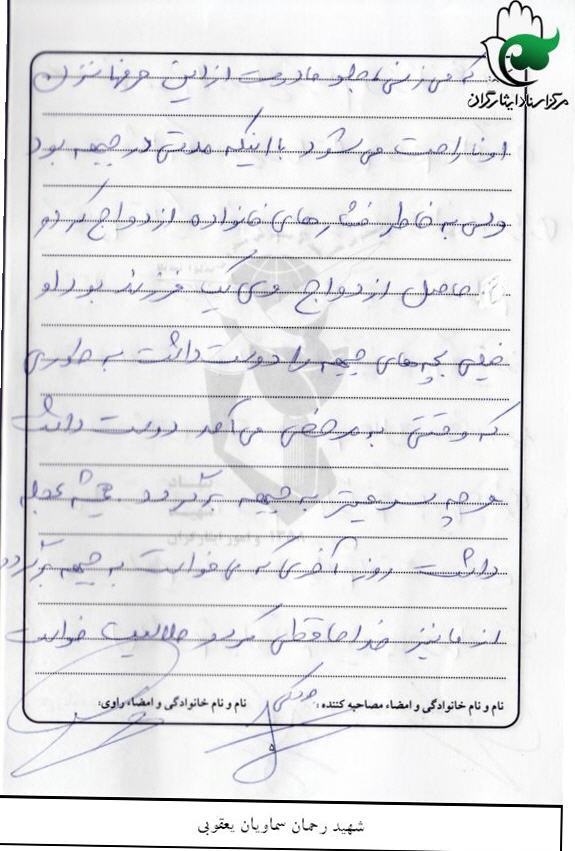 مرکز اسناد ایثارگران
که می‌زنی جلو مادرت از این حرفها نزن
او ناراحت می‌شود با اینکه مدتی در جبهه بود
ولی به خاطر فشارهای خانواده ازدواج کرد و
حاصل ازدواج وی یک فرزند بود او
خیلی بچه‌های جبهه را دوست داشت به طوری
که وقتی به مرخصی می‌آمد دوست داشت
هر چه سریعتر به جبهه برگردد همیشه عجله
داشت روز آخری که می‌خواست به جبهه برگردد
از ما نیز خداحافظی کرد و حلالیت خواست
نام و نام خانوادگی و امضاء مصاحبه کننده :
نام و نام خانوادگی و امضاء راوی:
۵
شهید رحمان سماویان یعقوبی